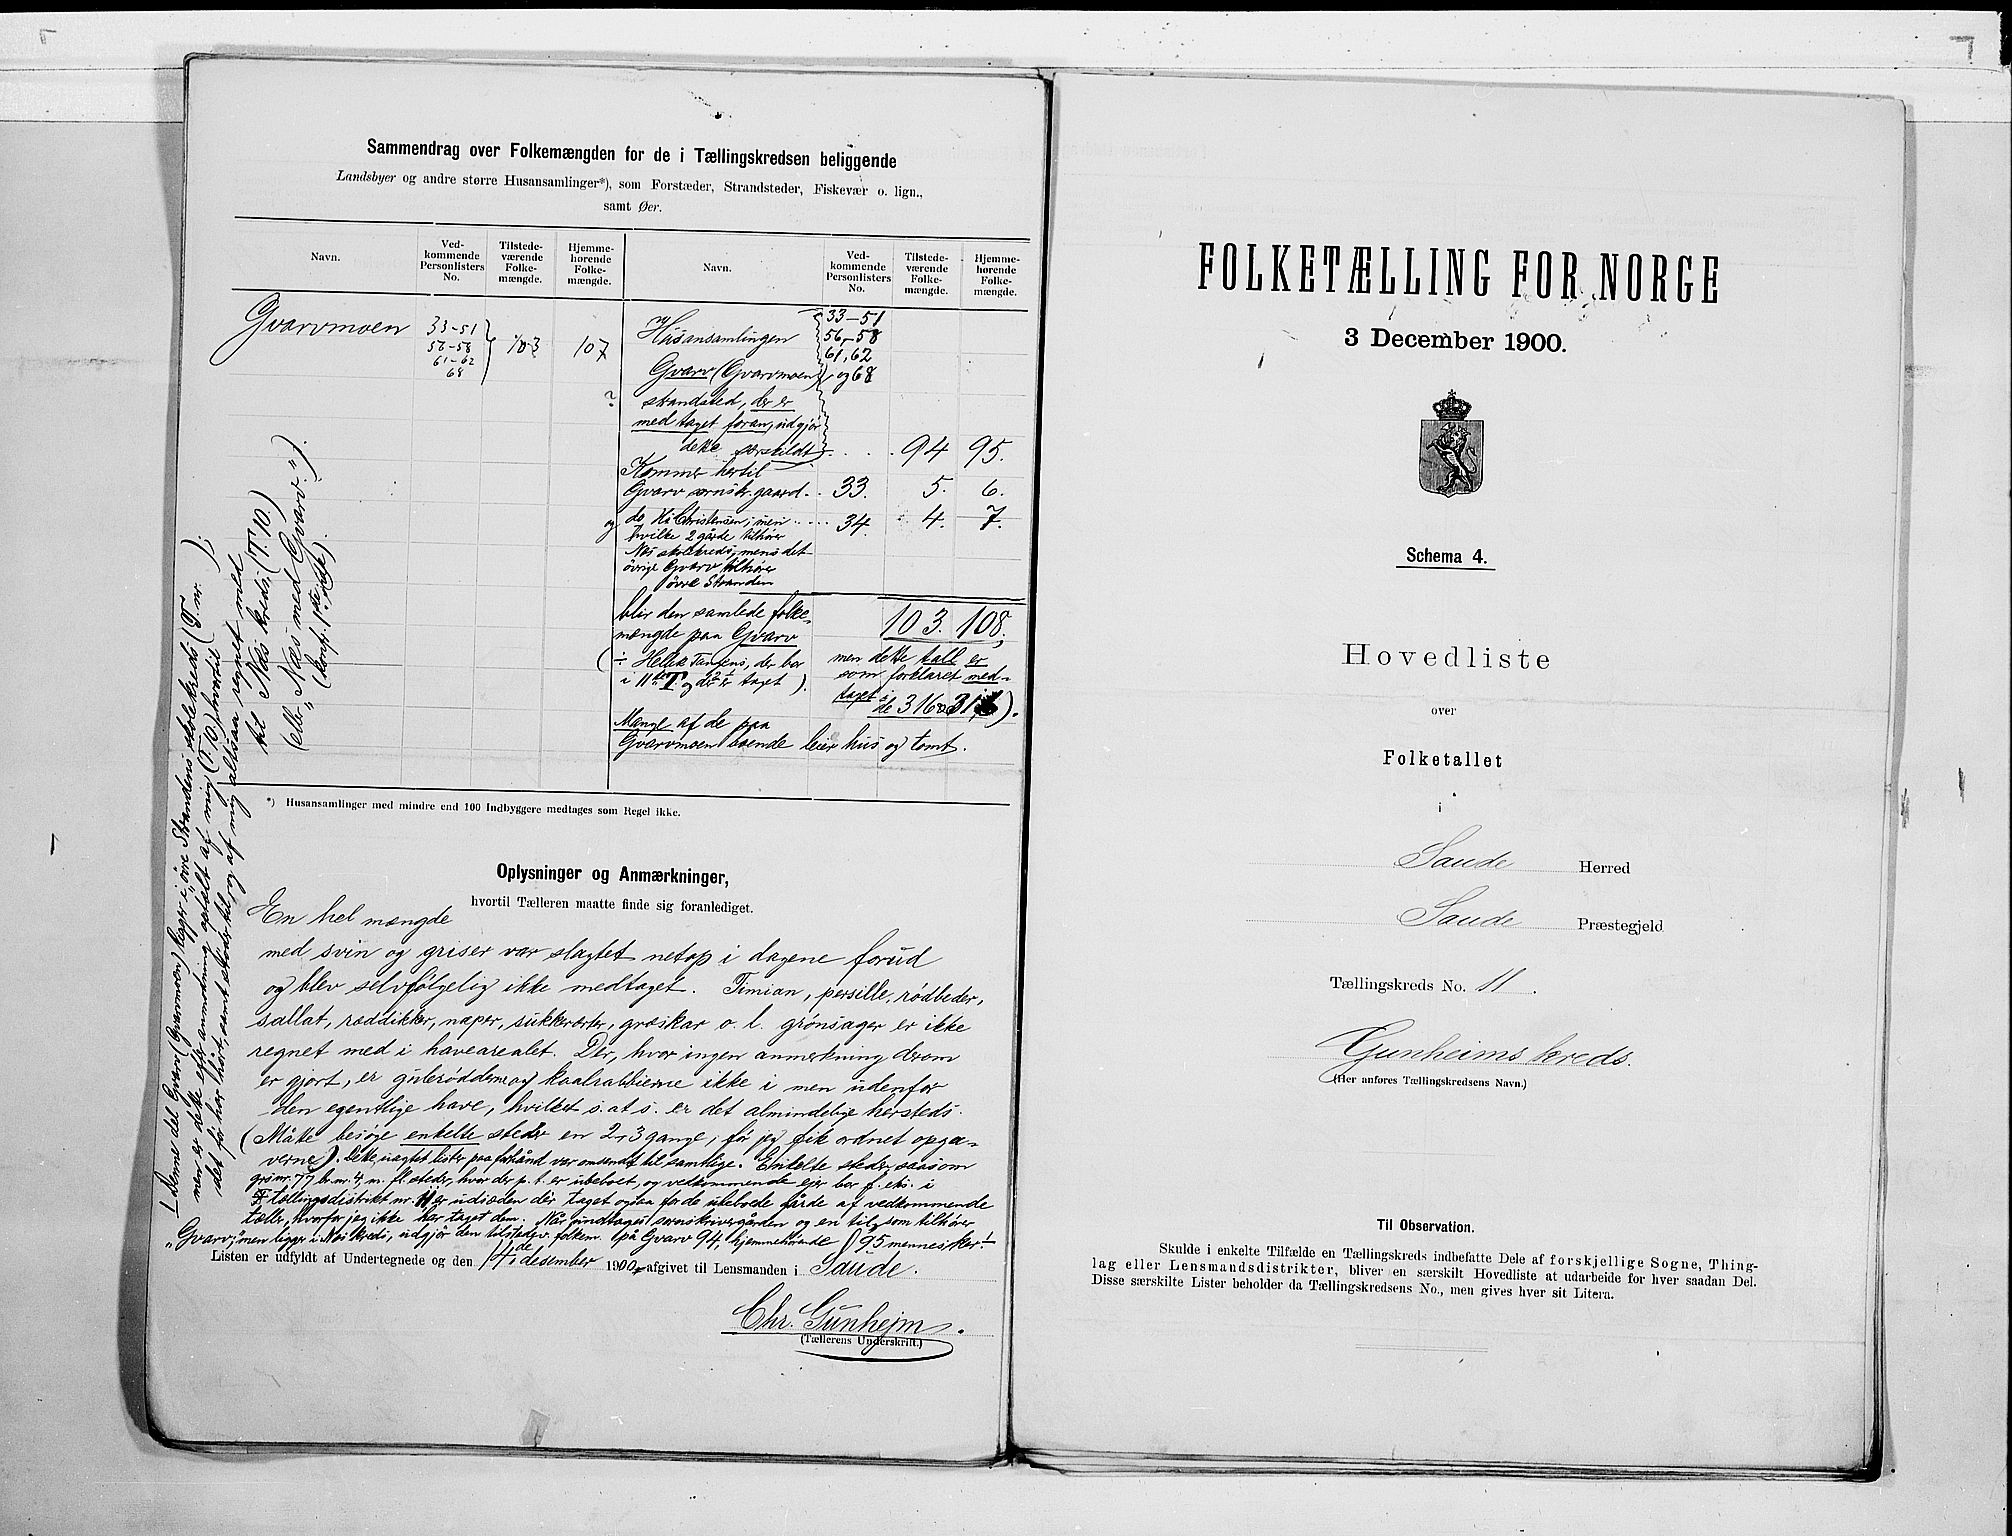 Sammendrag over Folkemængden for de i Tællingskredsen beliggende
Landsbyer og andre større Husansamlinger*), som Forstæder, Strandsteder, Fiskevær o. lign.,
samt Øer.
Navn.
Ved-
kommende
Personlisters
No.
Tilstede-
værende
Folke-
mængde.
Hjemme-
hørende
Folke-
mængde.
Navn.
Ved-
kommende
Personlisters
No.
Tilstede-
værende
Folke-
mængde.
Hjemme-
hørende
Folke-
mængde.
Gvarvmoen
33-51
56-58
61-62
68
103
107
Husansamlingen
Gvarv (Gvarvmoen)
33-51
56-58
61, 62
og 68
? strandsted, der er
med taget foran, udgjør
dette særskildt . . . 94 95.
Kommer hertil
Gvarv sornskr. gaard . . 33. 5. 6.
og do H. Christensen; men . . . . 34. 4. 7.
hvilke 2 gårde tilhører
Næs skolekreds, mens det
øvrige Gvarv tilhører
øvre Stranden
blir den samlede folke-
mængde paa Gvarv 103. 108,
(÷ Helik Tansens, der bor
i 11te T. og der er taget ).
men dette tall er
som forklaret med-
taget i
de 316 316).
Mange af de paa
Gvarvmoen boende leier hus og tomt.
*) Husansamlinger med mindre end 100 Indbyggere medtages som Regel ikke.
1 Denne del Gvarv (Gvarvmoen) ligger i øvre Strandens skolekreds (T. nr. );
men er dette efter anmodning optælt af mig (T 10) hvortil
det før har hørt, samt støder til, og af mig altsaa regnet med
til Næs kreds (T. 10.)
(eller Næs med Gvarv").
" (Conf. 1ste side).
Oplysninger og Anmærkninger,
hvortil Tælleren maatte finde sig foranlediget.
En hel mængde
med svin og griser var slagtet netop i dagene forud
og blev selvfølgelig ikke medtaget. Timian, persille, rødbeder,
sallat, ræddikker, næper, sukkerærter, græskar o. l. grønsager er ikke
regnet med i havearealet. Der, hvor ingen anmerkning derom
er gjort, er gulerødderne og kaalrabbierne ikke i men udenfor
den egentlige have, hvilket s. at s. er det almindelige hersteds.
(Måtte besøge enkelte steder en 2-3 gange, før jeg fik ordnet opga-
verne). Dette, uagtet lister paa forhånd var omsendt til samtlige. Enkelte steder saasom
grsnr. 77 br. nr. 4, m. fl. steder, hvor der p. t. er ubeboet, og vedkommende ejer bor f. eks. i
tællingsdistrikt nr. 11 er udsæden der taget ogsaa for de ubeboede gårde af vedkommende
tæller, hvorfor jeg ikke har taget dem. Når undtages sornskrivergården og en til, som tilhører
"Gvarv", men ligger i Næs kreds, udgjør den tilstedev. folkem. på Gvarv 94, hjemmehørende 95 mennesker. 1
Listen er udfyldt af Undertegnede og den 14de desember 1900 afgivet til Lensmanden i Saude.
Chr. Gunhejm.
(Tællerens Underskrift.)
FOLKETÆLLING FOR NORGE
3 December 1900.
Schema 4.
Hovedliste
over
Folketallet
i
Saude Herred
Saude Præstegjeld
Tællingskreds No. 11.
Gunheims kreds.
(Her anføres Tællingskredsens Navn.)
Til Observation.
Skulde i enkelte Tilfælde en Tællingskreds indbefatte Dele af forskjellige Sogne, Thing-
lag eller Lensmandsdistrikter, bliver en særskilt Hovedliste at udarbeide for hver saadan Del.
Disse særskilte Lister beholder da Tællingskredsens No., men gives hver sit Litera.